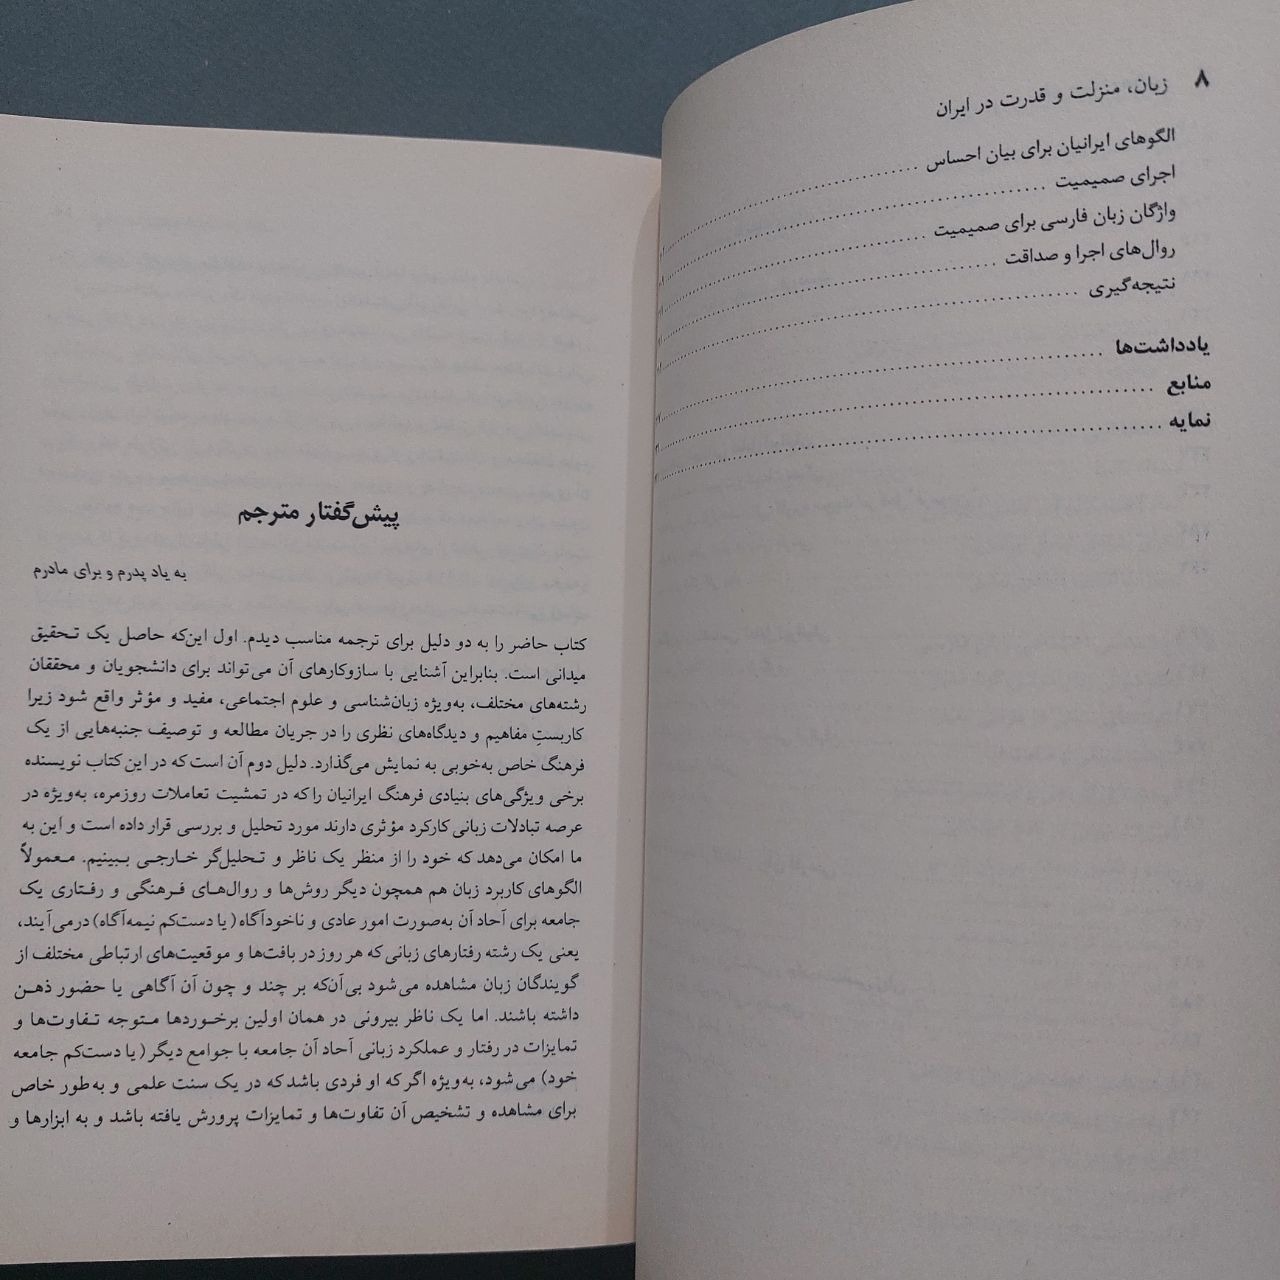 ۸ زبان، منزلت و قدرت در ایران
الگوهای ایرانیان برای بیان احساس
اجرای صمیمیت
واژگان زبان فارسی برای صمیمیت
روال‌های اجرا و صداقت
نتیجه‌گیری
یادداشت‌ها
منابع
نمایه
پیش‌گفتار مترجم
به یاد پدرم و برای مادرم
کتاب حاضر را به دو دلیل برای ترجمه مناسب دیدم. اول این‌که حاصل یک تحقیق
میدانی است. بنابراین آشنایی با سازوکارهای آن می‌تواند برای دانشجویان و محققان
رشته‌های مختلف، به‌ویژه زبان‌شناسی و علوم اجتماعی، مفید و مؤثر واقع شود زیرا
کاربستِ مفاهیم و دیدگاه‌های نظری را در جریان مطالعه و توصیف جنبه‌هایی از یک
فرهنگ خاص به‌خوبی به نمایش می‌گذارد. دلیل دوم آن است که در این کتاب نویسنده
برخی ویژگی‌های بنیادی فرهنگ ایرانیان را که در تمشیت تعاملات روزمره، به‌ویژه در
عرصه تبادلات زبانی کارکرد مؤثری دارند مورد تحلیل و بررسی قرار داده است و این به
ما امکان می‌دهد که خود را از منظر یک ناظر و تحلیل‌گر خارجی ببینیم. معمولاً
الگوهای کاربرد زبان هم همچون دیگر روش‌ها و روال‌های فرهنگی و رفتاری یک
جامعه برای آحاد آن به‌صورت امور عادی و ناخودآگاه (یا دست‌کم نیمه‌آگاه) درمی‌آیند،
یعنی یک رشته رفتارهای زبانی که هر روز در بافت‌ها و موقعیت‌های ارتباطی مختلف از
گویندگان زبان مشاهده می‌شود بی‌آن‌که بر چند و چون آن آگاهی یا حضور ذهن
داشته باشند. اما یک ناظر بیرونی در همان اولین برخوردها متوجه تفاوت‌ها و
تمایزات در رفتار و عملکرد زبانی آحاد آن جامعه با جوامع دیگر (یا دست‌کم جامعه
خود) می‌شود، به‌ویژه اگر که او فردی باشد که در یک سنت علمی و به‌طور خاص
برای مشاهده و تشخیص آن تفاوت‌ها و تمایزات پرورش یافته باشد و به ابزارها و